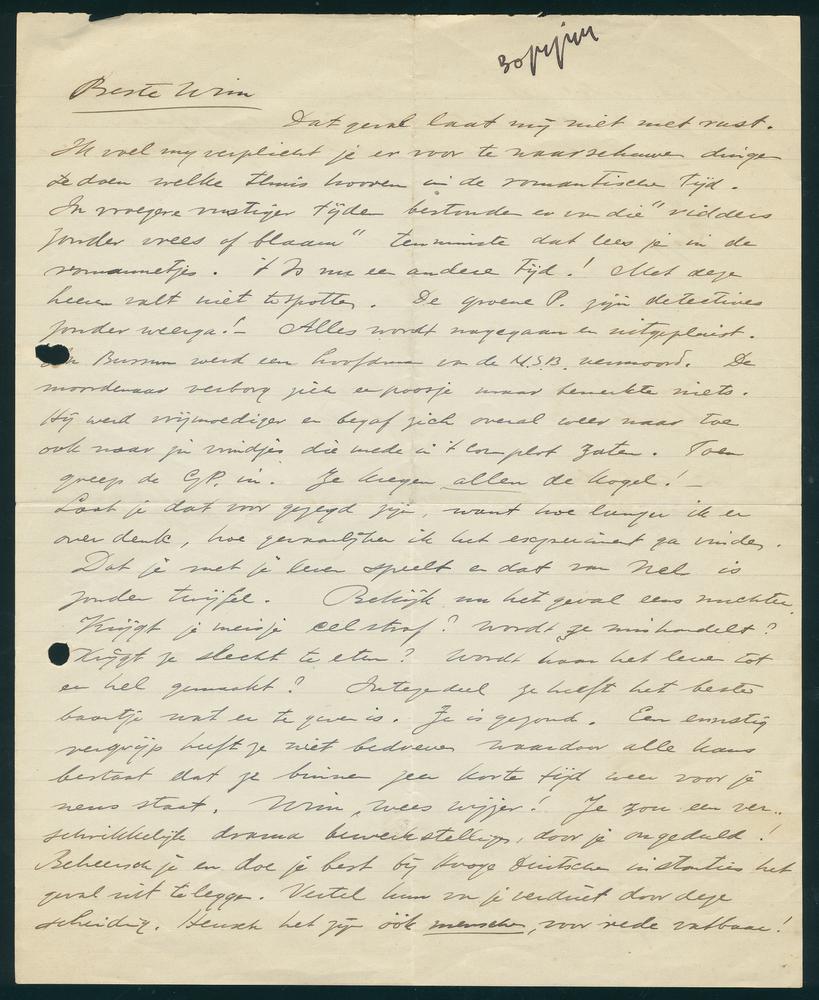 Beste Wim
Dat geval laat mij niet met rust.
Ik voel mij verplicht je er voor te waarschuwen dingen
te doen welke thuis hooren in de romantische tijd.
In vroegere rustiger tijden bestonden er van die "ridders
zonder vrees of blaam" tenminste dat lees je in de
romannetjes. 't Is nu een andere tijd! Met deze
heeren valt niet te spotten. De groene P. zijn detectives
zonder weerga! – Alles wordt nagegaan en uitgeplozen.
In Bussum werd een hoofdman van de N.S.B. vermoord. De
moordenaar verborg zich een poosje maar bemerkte niets.
Hij werd vrijmoediger en begaf zich overal weer naar toe
ook naar zijn vrindjes die mede in 't complot zaten. Toen
greep de G.P. in. Ze kregen allen de kogel! –
Laat je dat voor gezegd zijn, want hoe langer ik er
over denk, hoe gevaarlijker ik het experiment ga vinden.
Dat je met je leven speelt en dat van Nel is
zonder twijfel. Bekijk nu het geval eens nuchter.
Krijgt je meisje celstraf? Wordt ze mishandelt?
Krijgt ze slecht te eten? Wordt haar het leven tot
een hel gemaakt? Integendeel ze heeft het beste
baantje wat er te geven is. Ze is gezond. Een ernstig
vergrijp heeft ze niet bedreven waardoor alle kans
bestaat dat ze binnen zeer korte tijd weer voor je
neus staat. Wim, wees wijzer! Je zou een ver-
schrikkelijk drama bewerkstelligen, door je ongeduld!
Beheersch je en doe je best bij hooge Duitsche instanties het
geval uit te leggen. Vertel hun van je verdriet door deze
scheiding. Heusch het zijn óók menschen, voor rede vatbaar!